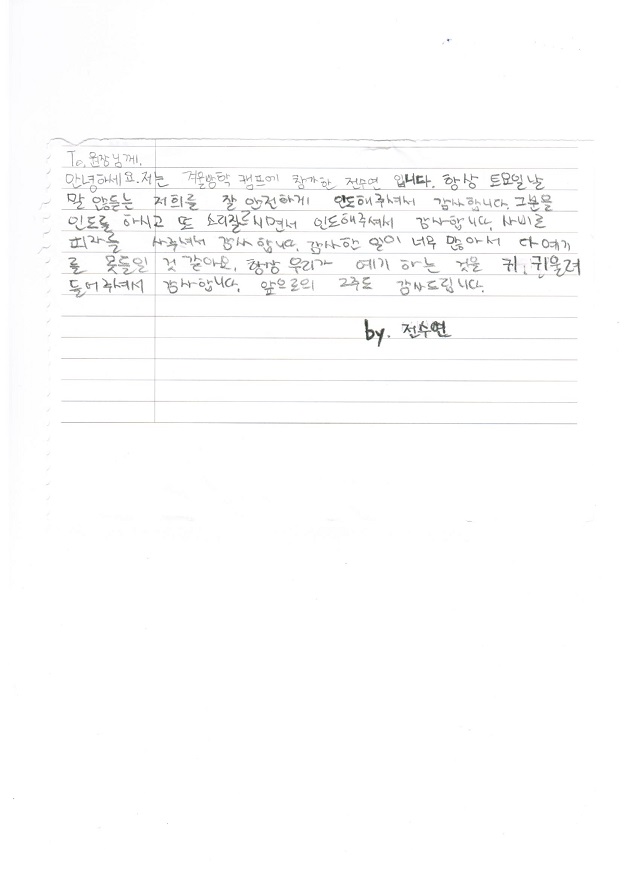 To. 원장님께.
안녕하세요. 저는 겨울방학 캠프에 참가한 전수연 입니다. 항상 토요일날
말 않듣는 저희를 잘 안전하게 인도해주셔서 감사합니다. 그분을
인도를 하시고 또 소리질르시면서 인도해주셔서 감사합니다. 사비로
피자를 사주셔서 감사합니다. 감사한 일이 너무 많아서 다 얘기
를 못들일 것 같아요. 항상 우리가 얘기 하는 것을 귀, 귀울려
들어주셔서 감사합니다. 앞으로의 2주도 감사드립니다.
by. 전수연